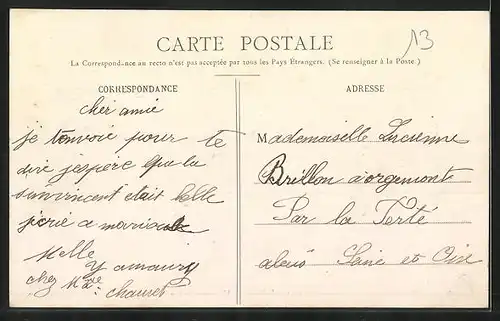 13
CARTE POSTALE
La Correspondance au recto n'est pas acceptée par tous les Pays Étrangers. (Se renseigner à la Poste.)
CORRESPONDANCE
cher amie
je tonvoie pour te
dire jespère que la
était belle
a
Melle
Y amaury
chez Mde chauvet
ADRESSE
Mademoiselle Lucienne
Brillon d'orgemont
Par la Ferté
alais Seine et Oise